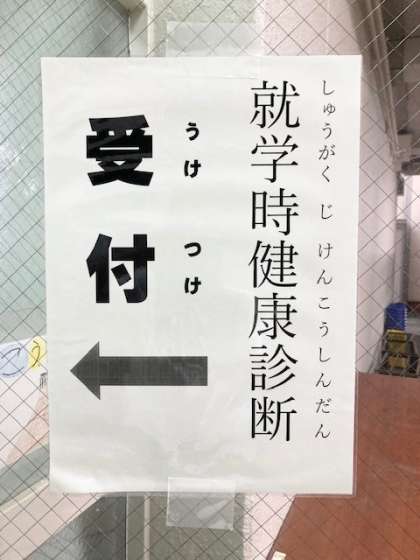 就学時健康診断
しゅうがく じ けんこうしんだん
受付
うけ つけ